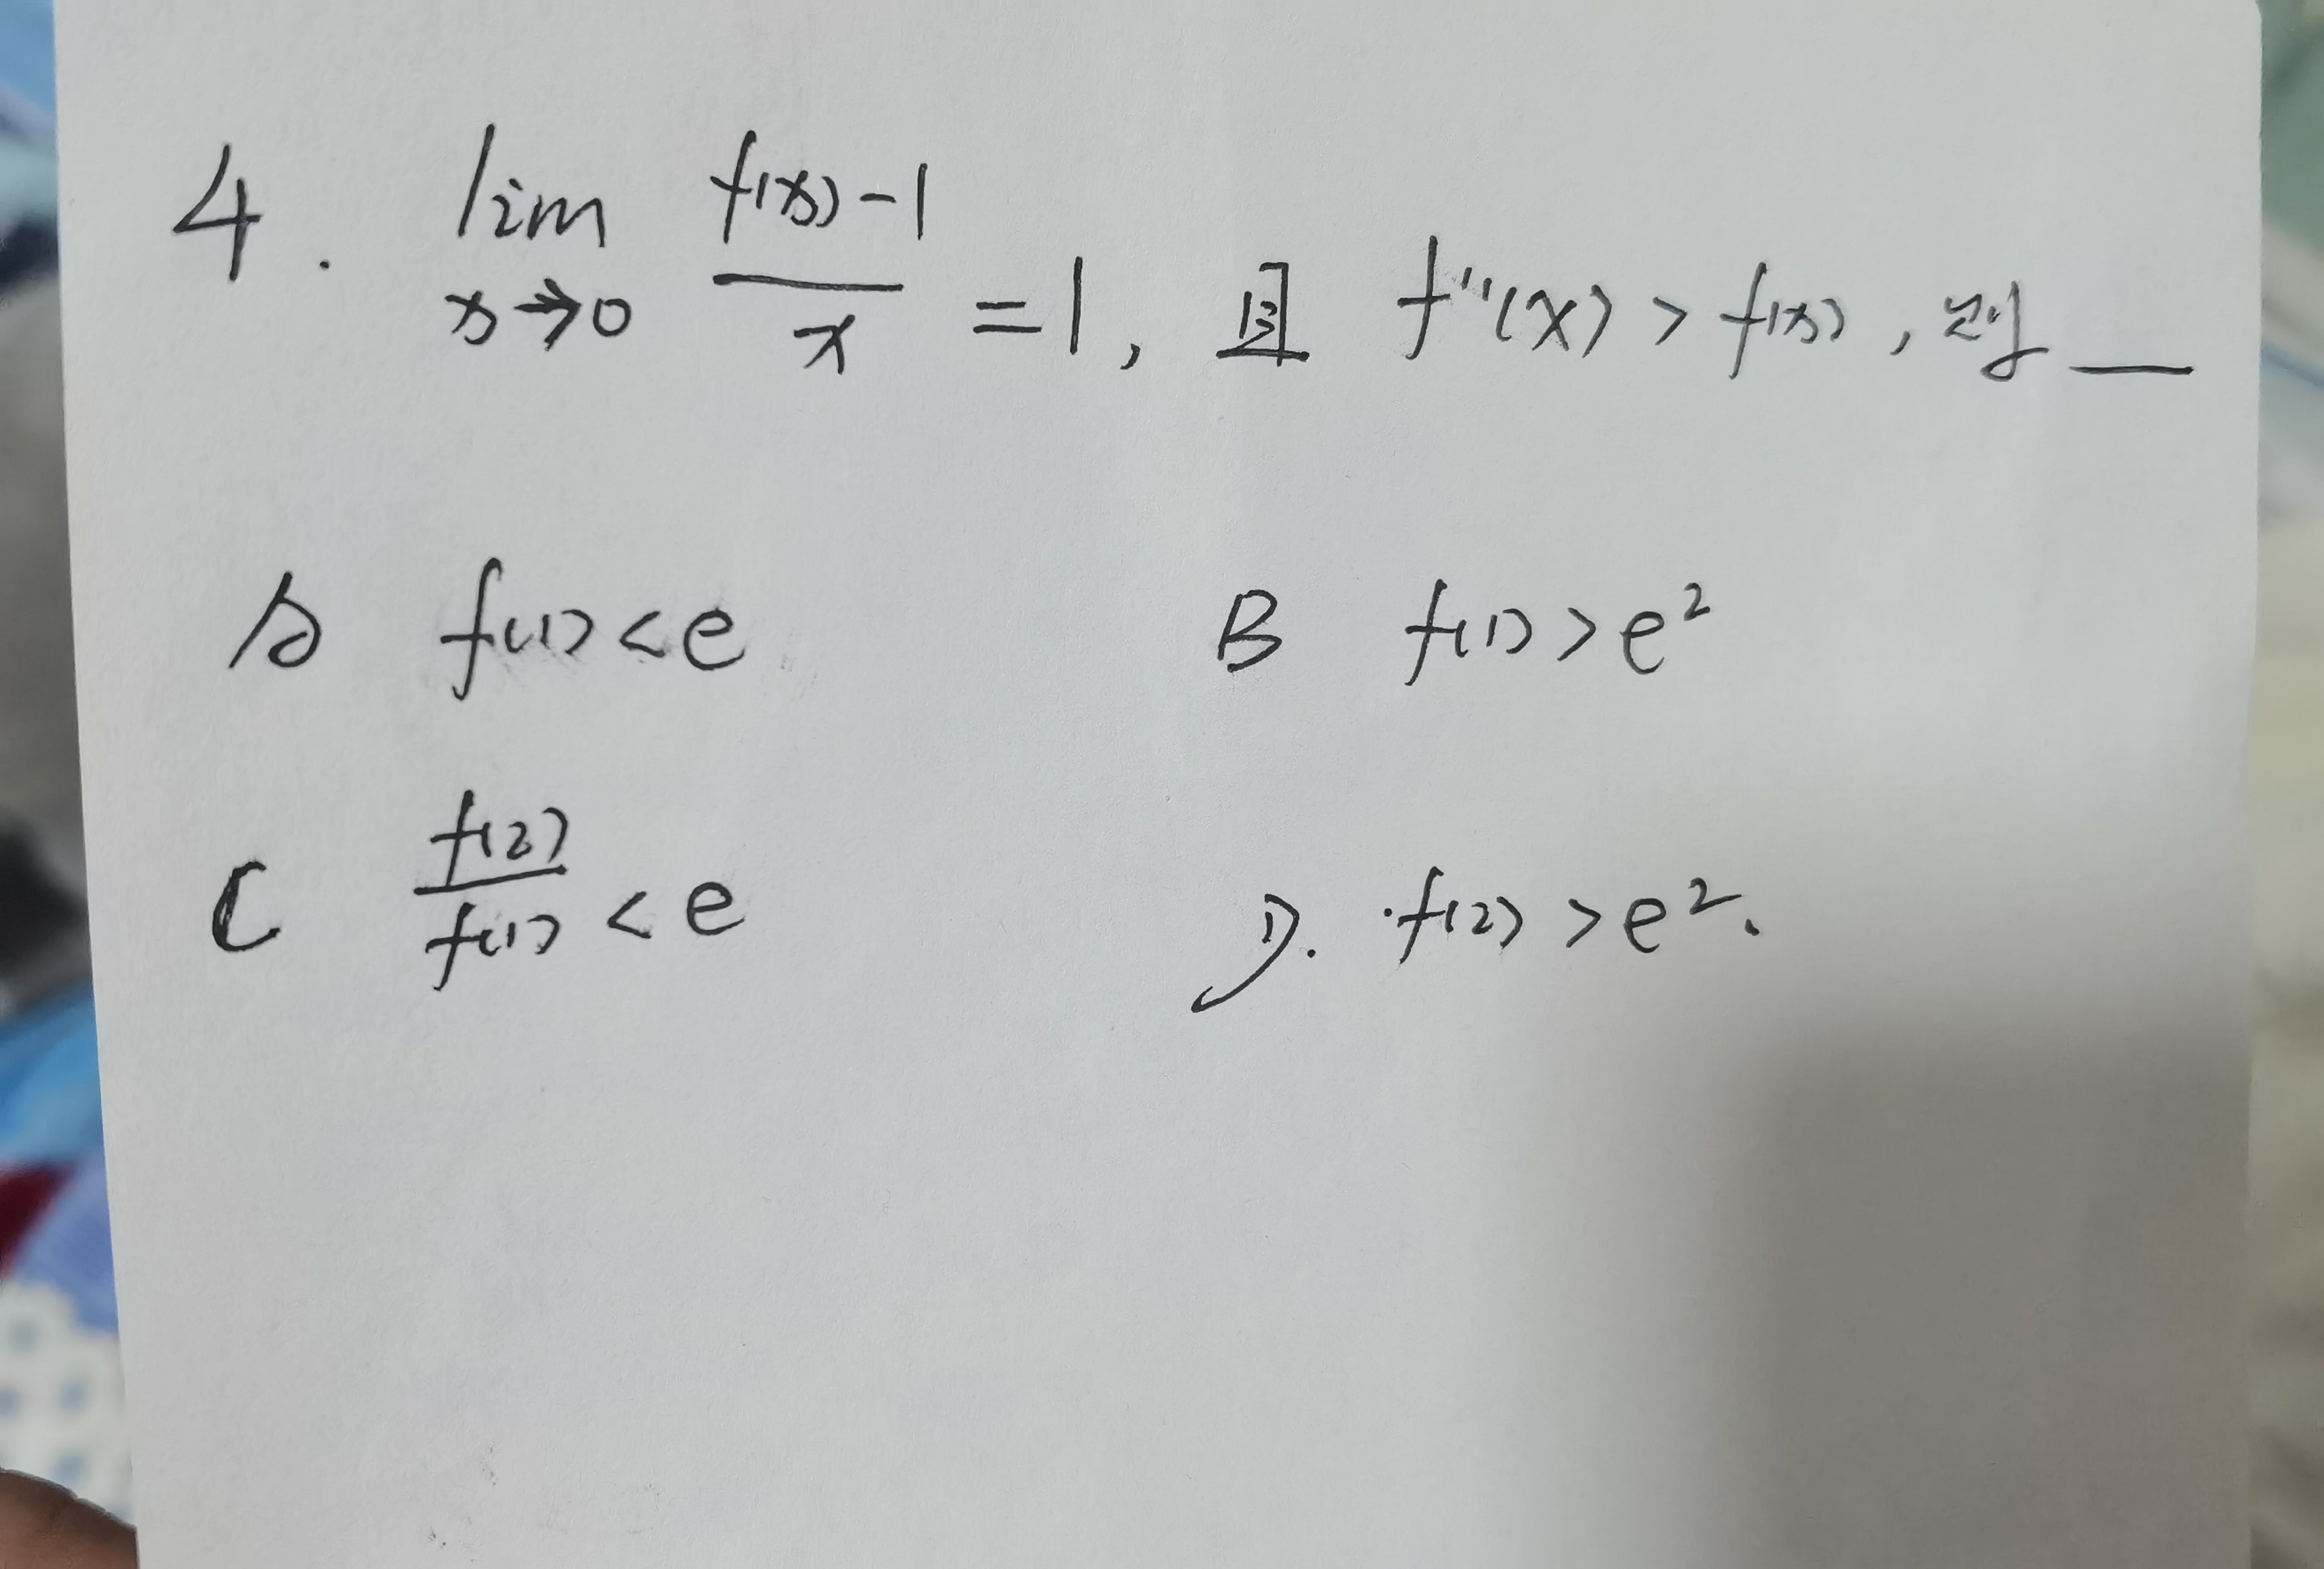 4. lim x→0 (f(x)-1)/x =1, 且 f''(x) > f(x), 则 __
A f(1)<e B f(1)>e²
C f(2)/f(1) <e D. f(2) >e².